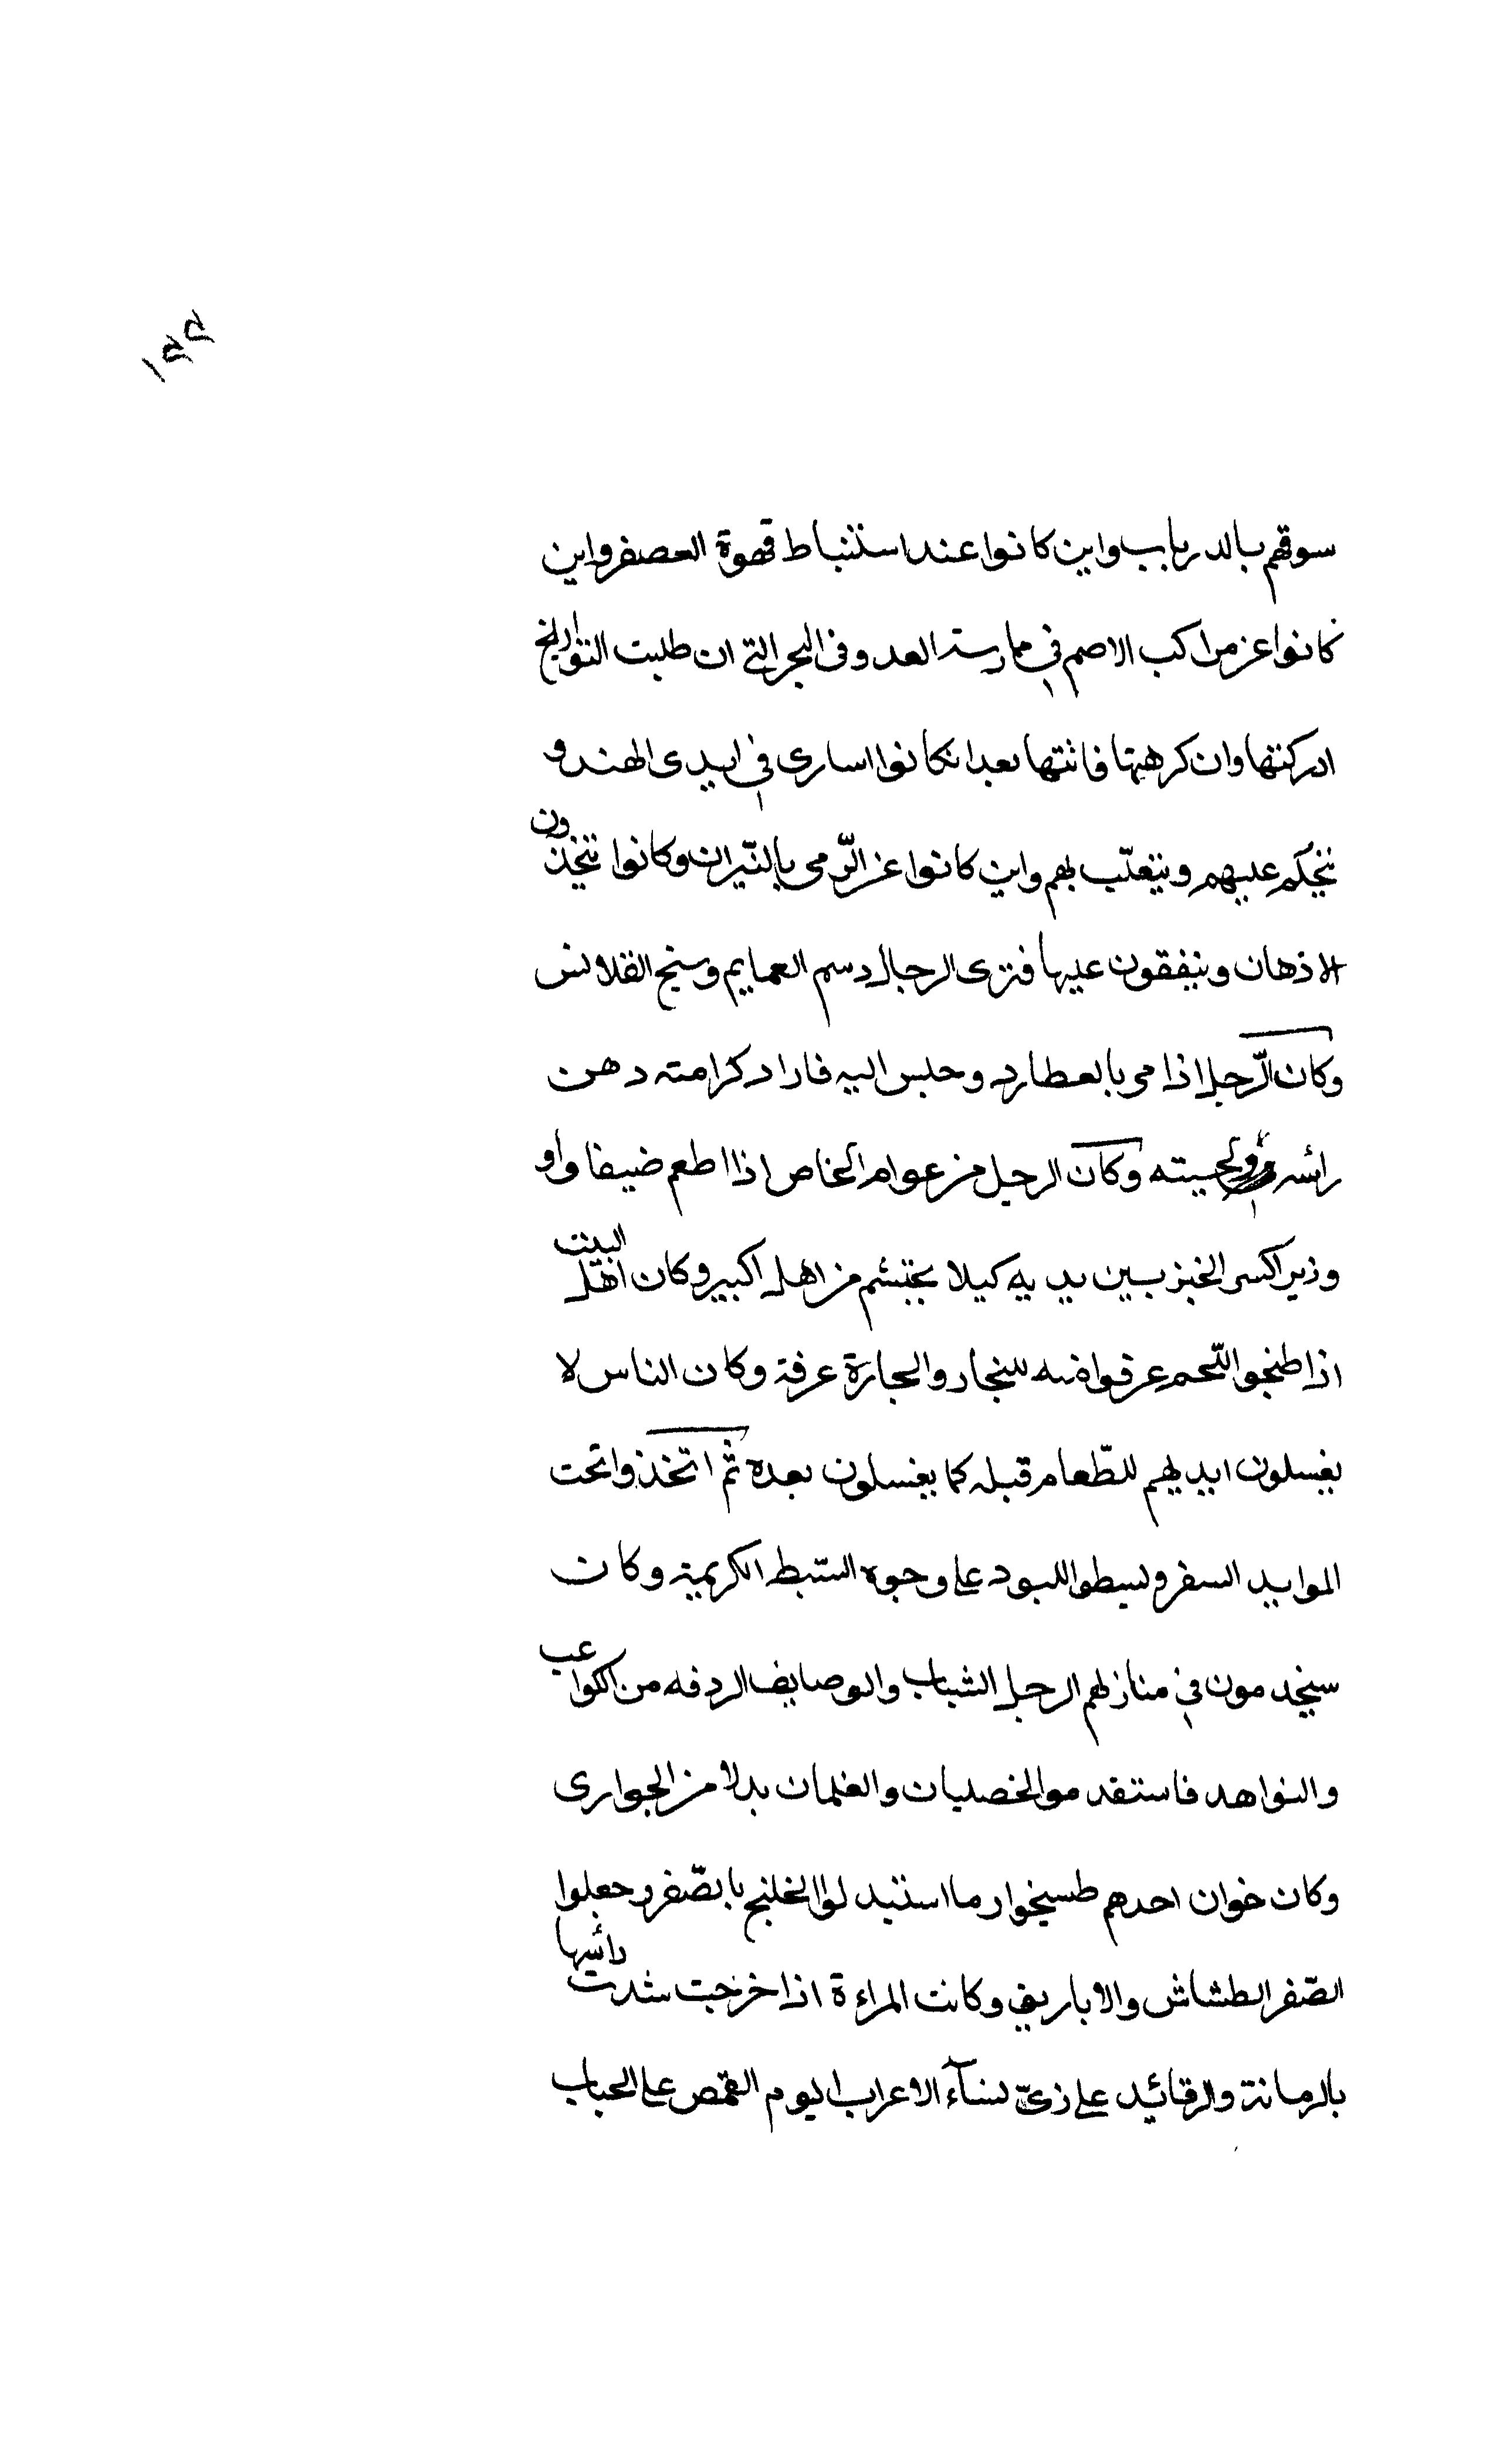 ١٢٢
سوقهم بالدرباب واين كانوا عند استنباط قهوة العصفر واين
كانوا عن مراكب الاصم في ممارسة العدو فى البحر التي ان طلبت التواريخ
ادركتها وان كرهتها فاتتها بعد ان كانوا اسارى في ايدى الهند و
يتحكم عليهم ويتعتب بهم واين كانوا عن الرّمى بالنّيران وكانوا يتخذون
الاذهان وينفقون عليها فترى الرجال دسم العمايم وسنج القلانس
وكان الرّجل اذا مر بالعطار د وجلس اليه فاراد كرامته دهن
رائسه ولحيته وكان الرجل من عوام الخاص اذا اطعم ضيفا واو
وزير اكسر الخبز بين يديه كيلا يحتشم من اهل اكبير وكان اهل البيت
اذا طبخوا اللّحم عرفوا منه للنجار والجارة عرفة وكان الناس لا
يغسلون ايديهم للطّعام قبله كما يغسلون بعده ثم اتخذوا تحت
الموايد السفر وبسطوا اللبود على وجوه البسط الكريمة وكان
سيخدمون في منازلهم الرجل الشباب والوصايف الردفه من الكواعب
والنواهد فاستقدموا الخصيان والغلمان بدلا من الجوارى
وكان خوان احدهم طسيخوار ما استبدلوا الخلنج بالصّفر وجعلوا
الصّفر الطشاش والاباريق وكانت المراءة اذا خرجت شدت رائسها
بالرمانة والرقائيد على زىّ نساء الاعراب اليوم القمص على الجباب